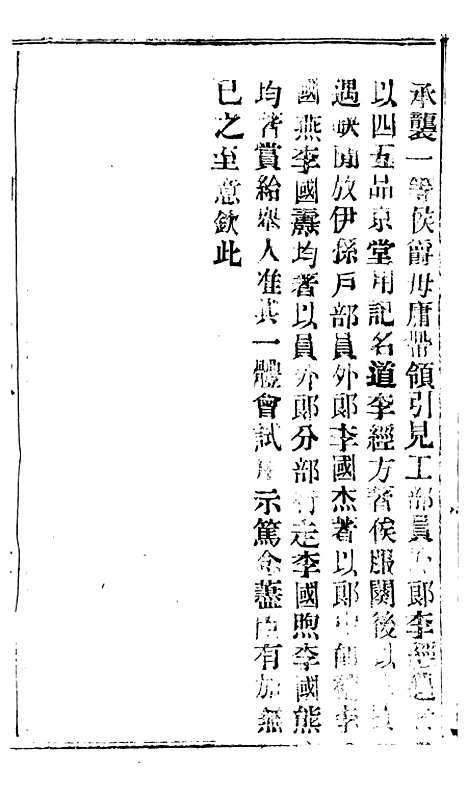 承襲一等侯爵毋庸帶領引見工部員外郎李經邁著
以四五品京堂用記名道李經方著俟服闋後以道員
遇缺開放伊孫戶部員外郎李國杰著以郎中即補李
國燕李國壽均著以員外郎分部行走李國煦李國熊
均著賞給舉人准其一體會試用示篤念藎臣有加無
已之至意欽此